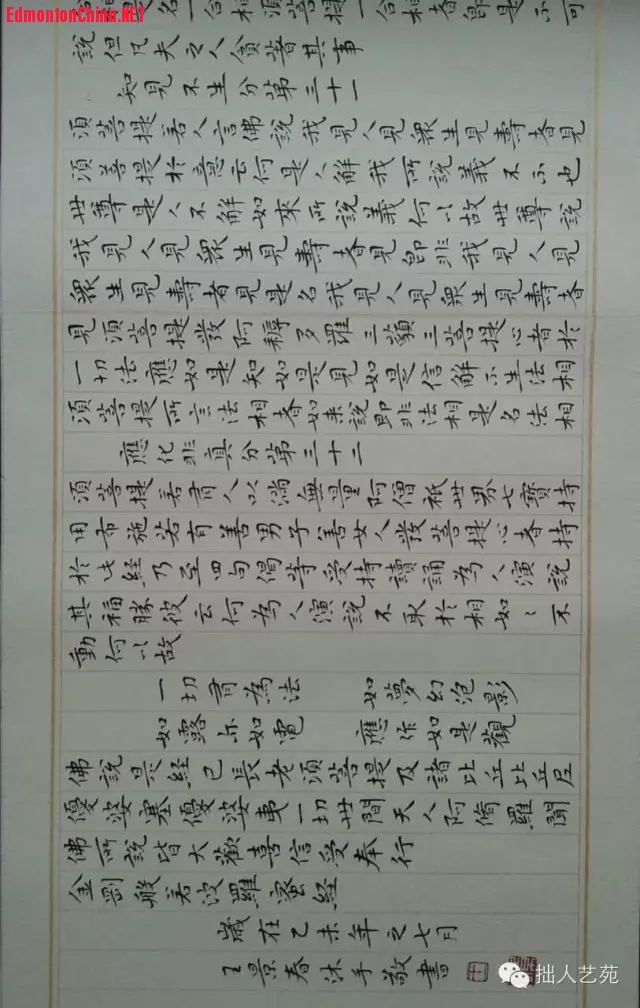 EdmontonChina.NET
名一合相須菩提一合相者即是不可
說但凡夫之人貪著其事
知見不生分第三十一
須菩提若人言佛說我見人見眾生見壽者見
須菩提於意云何是人解我所說義不不也
世尊是人不解如來所說義何以故世尊說
我見人見眾生見壽者見即非我見人見
眾生見壽者見是名我見人見眾生見壽者
見須菩提發阿耨多羅三藐三菩提心者於
一切法應如是知如是見如是信解不生法相
須菩提所言法相者如来說即非法相是名法相
應化非真分第三十二
須菩提若有人以滿無量阿僧祇世界七寶持
用布施若有善男子善女人發菩提心者持
於此經乃至四句偈等受持讀誦為人演說
其福勝彼云何為人演說不取於相如〻不
動何以故
一切有為法 如夢幻泡影
如露亦如電 應作如是觀
佛說是經已長老須菩提及諸比丘比丘尼
優婆塞優婆夷一切世間天人阿脩羅聞
佛所說皆大歡喜信受奉行
金剛般若波羅蜜經
歲在乙未年之七月
王景春沐手敬書
拙人艺苑